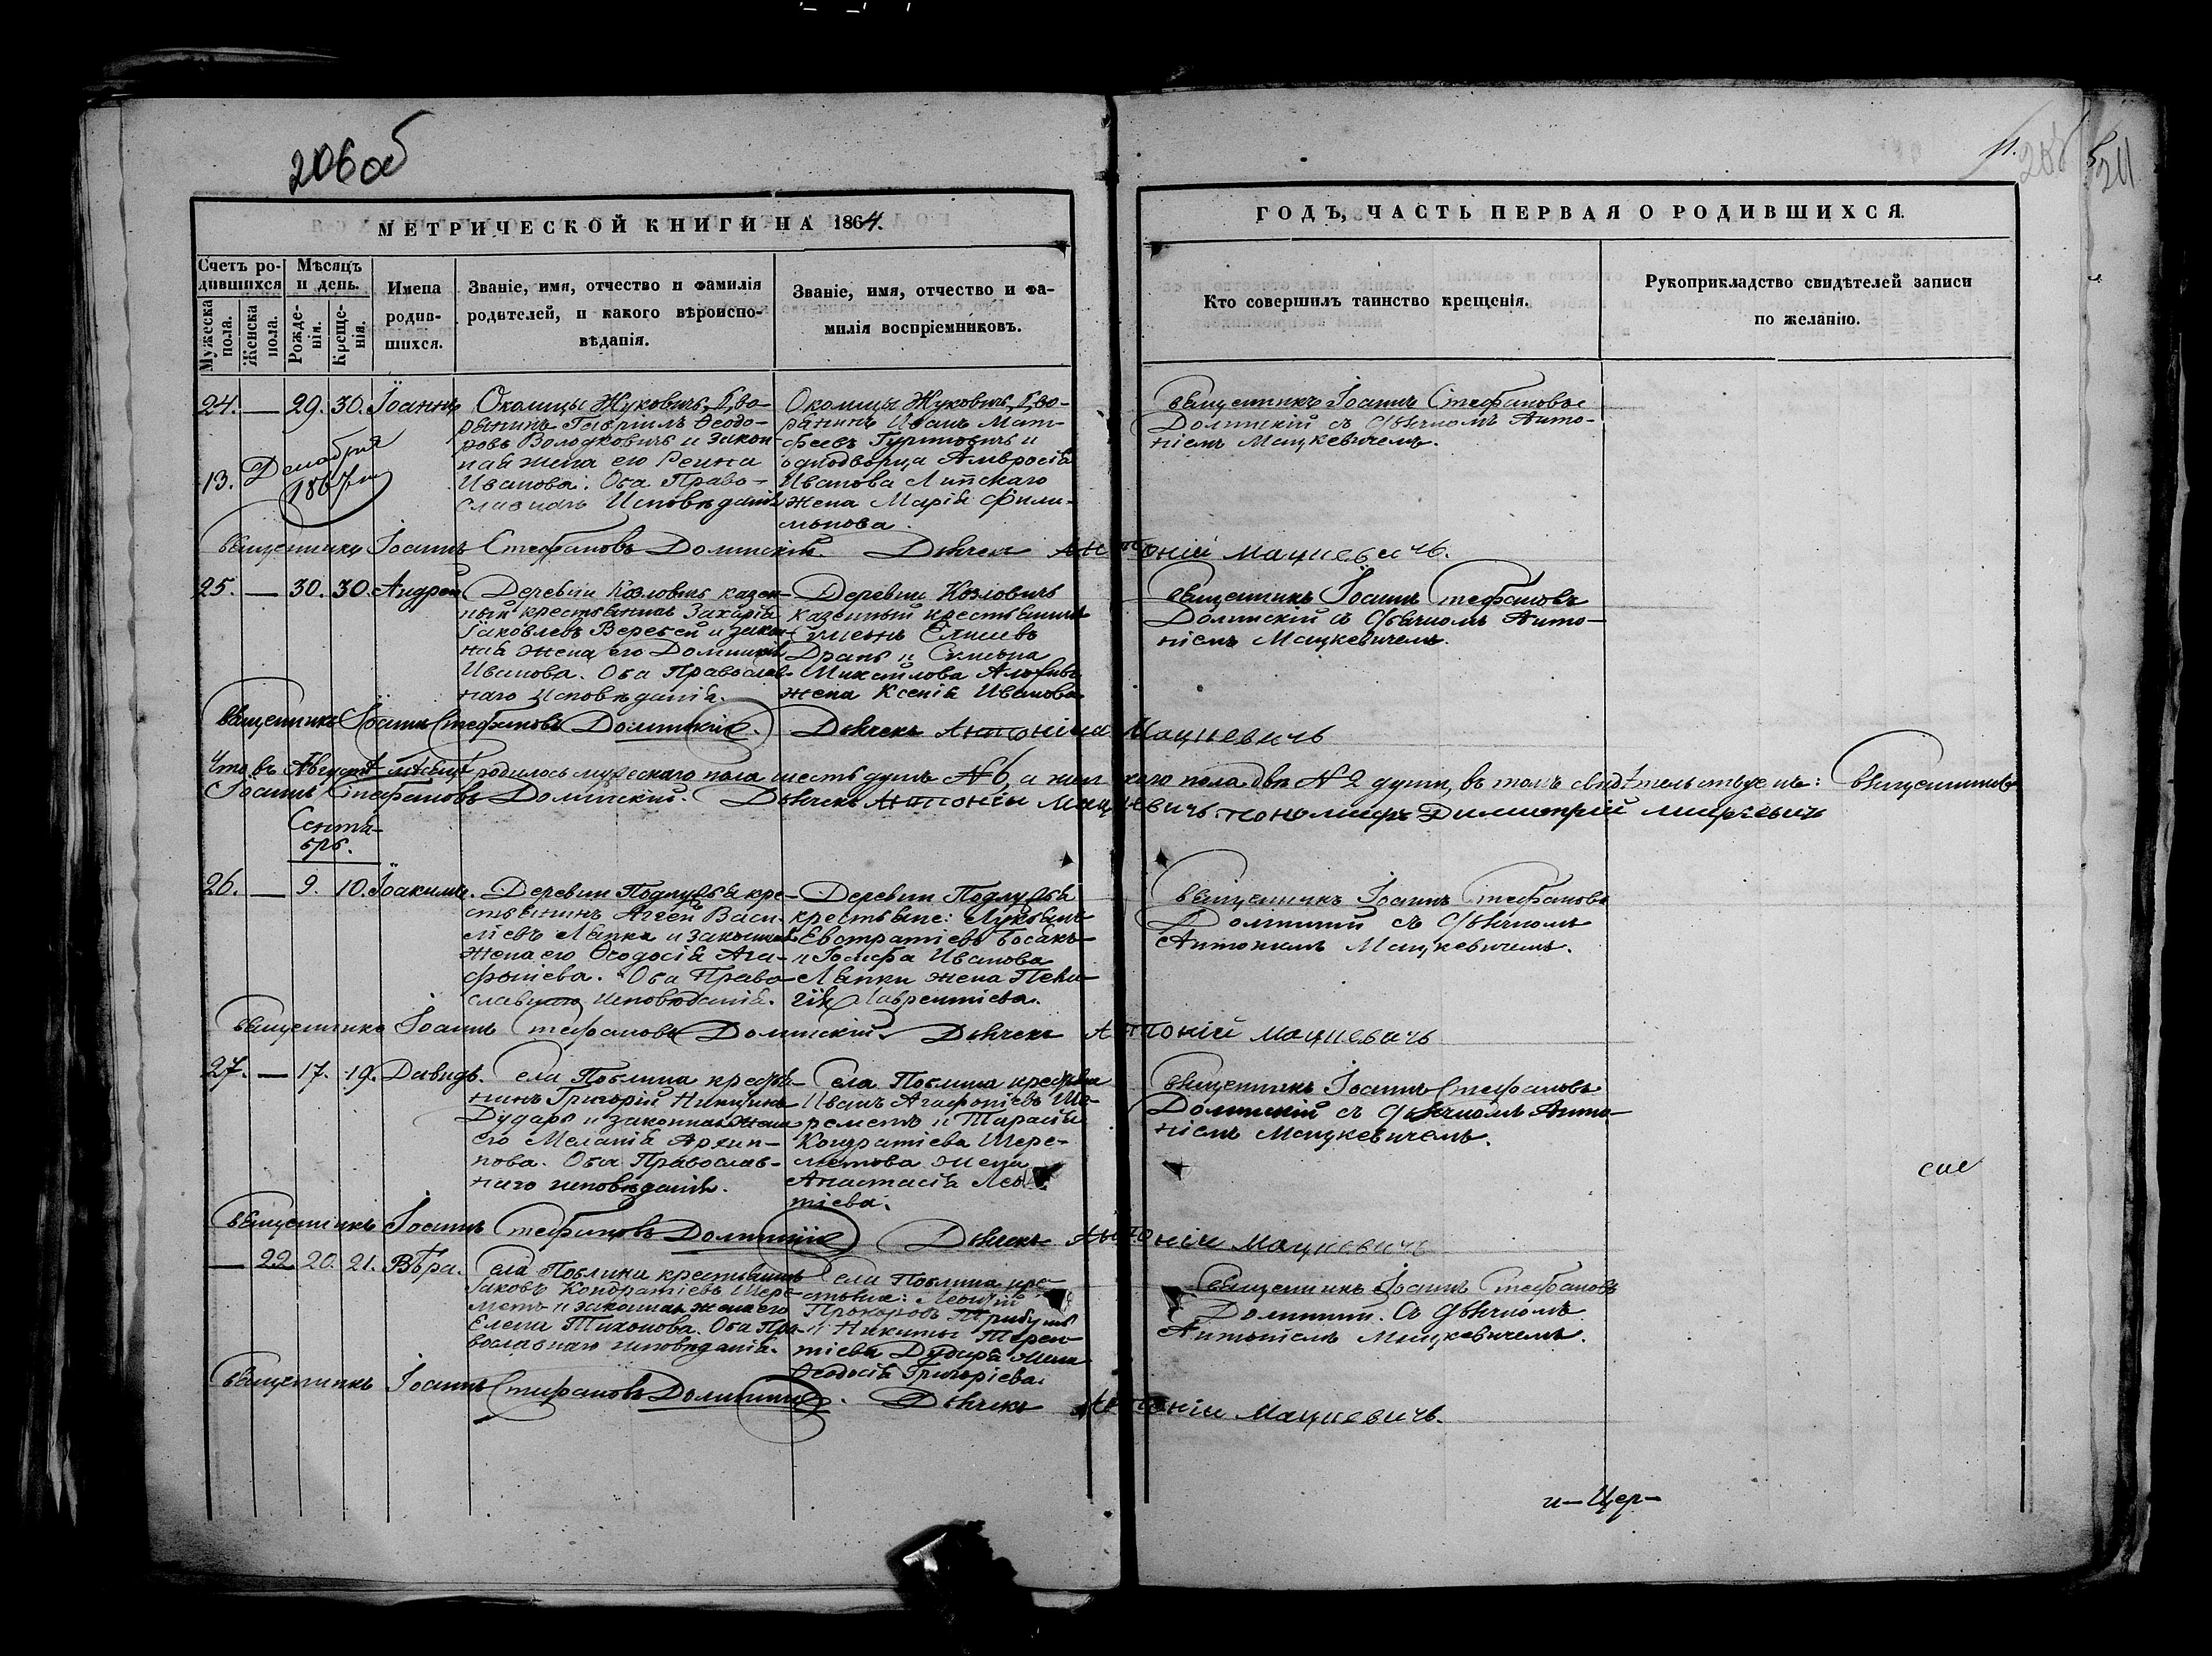 206 об
11.
МЕТРИЧЕСКОЙ КНИГИ НА 1864.
ГОДЪ, ЧАСТЬ ПЕРВАЯ О РОДИВШИХСЯ.
Счетъ родившихся
Мужеска пола.
Женска пола.
Мѣсяцъ и день.
Рожденія.
Крещенія.
Имена родившихся.
Званіе, имя, отчество и фамилія родителей, и какого вѣроисповѣданія.
Званіе, имя, отчество и фамилія воспріемниковъ.
Кто совершилъ таинство крещенія.
Рукоприкладство свидѣтелей записи по желанію.
24. — 29. 30. Іоаннъ
13. Декабря 1867
Околицы Жуковичъ, Дво-
рянинъ Гавріилъ Ѳеодо-
ровъ Володковичъ и закон-
ная жена его Реина
Иванова. Оба Право-
славнаго Исповѣданія
Околицы Жуковичъ, Дво-
рянинъ Иванъ Мат-
феевъ Гуртовичъ и
однодворца Амвросія
Иванова Липскаго
жена Марія Фили-
монова.
Священникъ Іоаннъ Стефановъ
Долинскій съ дьячкомъ Анто-
ніемъ Мацкевичемъ.
Священникъ Іоаннъ Стефановъ Долинскій. Дьячекъ Антоній Мацкевичъ.
25. — 30. 30. Андрей
Деревни Козловичъ казен-
ный крестьянинъ Захарія
Іаковлевъ Веребей и закон-
ная жена его Доминикія
Иванова. Оба Православ-
наго исповѣданія.
Деревни Козловичъ
казенный крестьянинъ
Драпъ и Симеона
Михайлова
жена Ксенія Иванова
Священникъ Іоаннъ Стефановъ
Долинскій съ дьячкомъ Анто-
ніемъ Мацкевичемъ.
Священникъ Іоаннъ Стефановъ Долинскій. Дьячекъ Антоній Мацкевичъ
Что въ Августѣ мѣсяцѣ родилось мужескаго пола шесть душъ №6, а женскаго пола двѣ №2 души, въ томъ свидѣтельствуемъ: Священникъ
Іоаннъ Стефановъ Долинскій. Дьячекъ Антоній Мацкевичъ пономарь Димитрій
Сентя-
брь.
26. — 9. 10. Іоакимъ.
Деревни Подлужья кре-
стьянинъ Аггей Васи-
ліевъ Лапка и законная
жена его Ѳеодосія Ага-
фоніева. Оба Право-
славнаго исповѣданія.
Деревни Подлужья
крестьяне: Лукьянъ
Евстратіевъ Босакъ
и Іосифа Иванова
Лапки жена Пела-
гія Лаврентіева.
Священникъ Іоаннъ Стефановъ
Долинскій съ дьячкомъ
Антоніемъ Мацкевичемъ.
Священникъ Іоаннъ Стефановъ Долинскій. Дьячекъ Антоній Мацкевичъ
27. — 17. 19. Давидъ.
Села Поблина крестья-
нинъ Григорій Никитинъ
Дударь и законная жена
его Меланія Архип-
пова. Оба Православ-
наго исповѣданія.
Села Поблина крестьяне
Иванъ Агафоніевъ Ше-
реметъ и Тарасія
Кондратіева Шере-
метова жена
Анастасія Леон-
тіева.
Священникъ Іоаннъ Стефановъ
Долинскій съ дьячкомъ Анто-
ніемъ Мацкевичемъ.
сие
Священникъ Іоаннъ Стефановъ Долинскій Дьячекъ Антоній Мацкевичъ
— 22. 20. 21. Вѣра.
Села Поблина крестьянинъ
Іаковъ Кондратіевъ Шере-
метъ и законная жена его
Елена Тихонова. Оба Пра-
вославнаго исповѣданія.
Села Поблина кре-
стьяне: Леонтій
Прохоровъ Трибушъ
и Никиты Терен-
тіева Дударя жена
Ѳеодосія Григоріева.
Священникъ Іоаннъ Стефановъ
Долинскій. Съ дьячкомъ
Антоніемъ Мацкевичемъ.
Священникъ Іоаннъ Стефановъ Долинскій. Дьячекъ Антоній Мацкевичъ.
и — Цер —